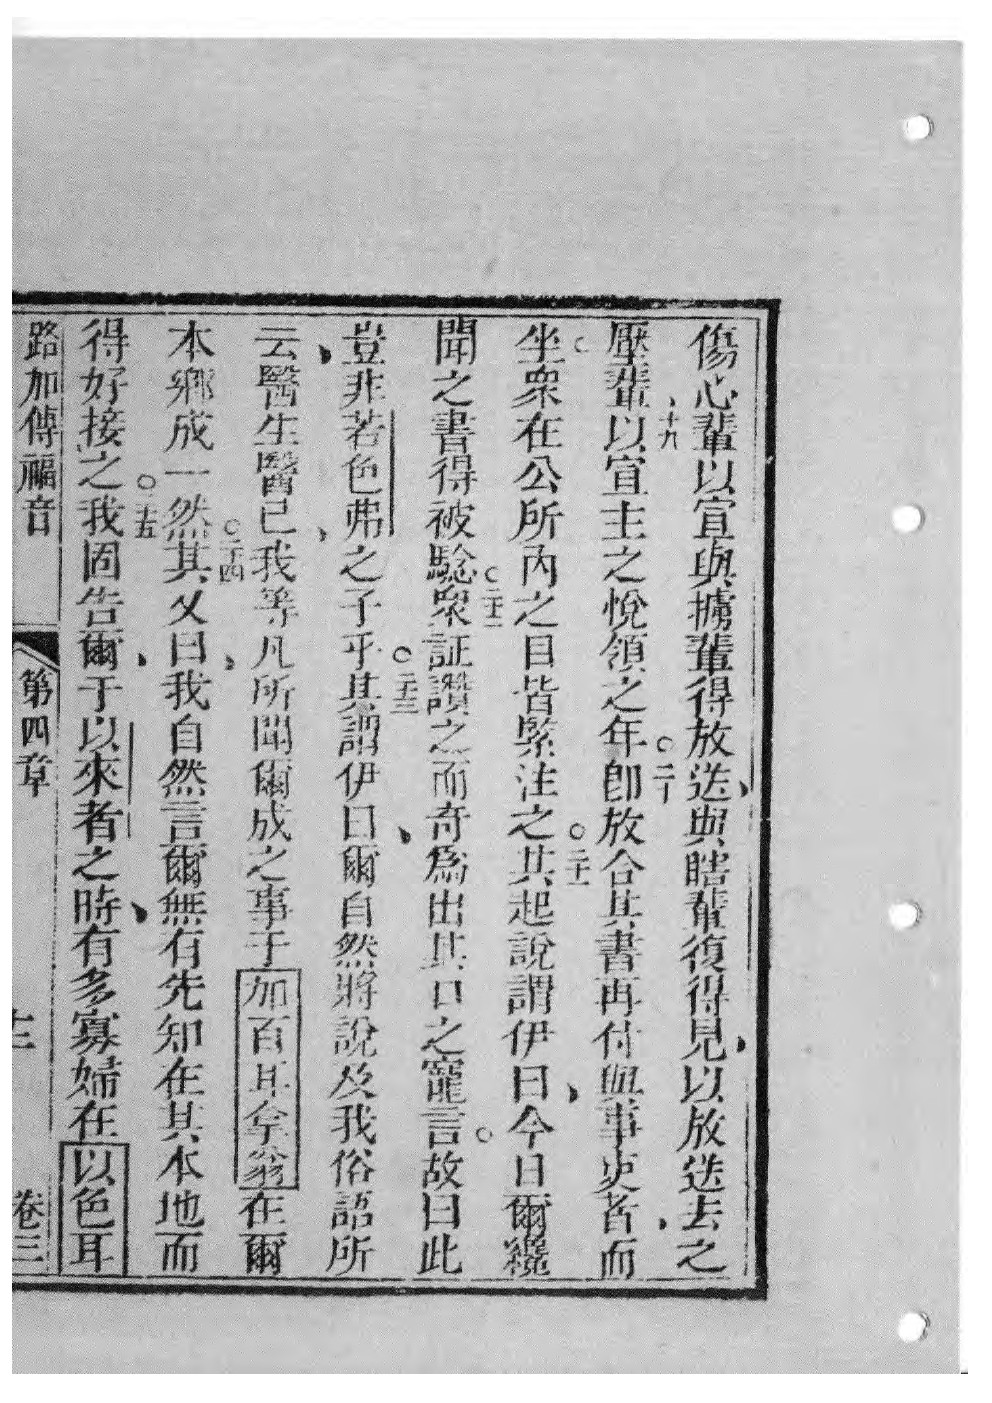 傷心輩以宣與擄輩得放送與瞎輩復得見以放送去之
壓輩十九以宣主之悅領之年二十即放合其書再付與事吏者而
坐衆在公所內之目皆緊注之二十一其起說謂伊曰今日爾纔
聞之書得被騐二十二衆証讚之而奇為出其口之寵言故曰此
豈非若色弗之子乎二十三其謂伊曰爾自然將說及我俗語所
云醫生醫己我等凡所聞爾成之事于加百耳拿翁在爾
本鄉成一然二十四其又曰我自然言爾無有先知在其本地而
得好接之二十五我固告爾于以來者之時有多寡婦在以色耳
路加傳福音 第四章 卷三